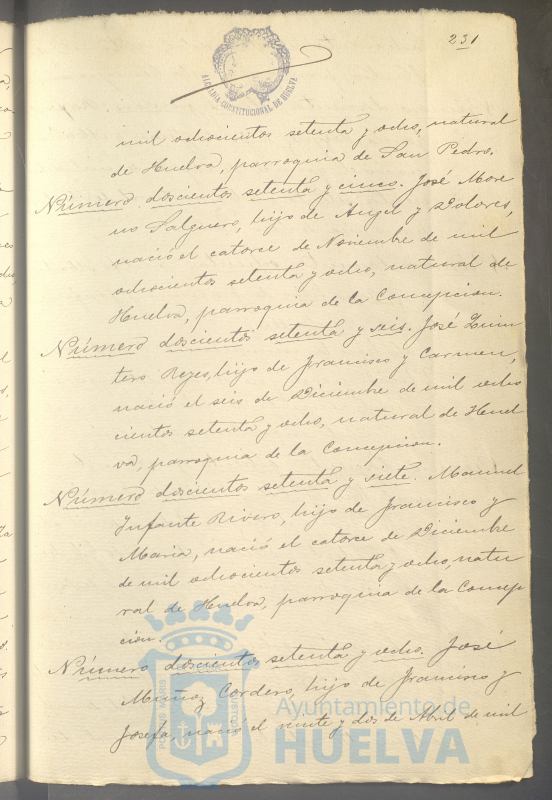 231
ALCALDIA CONSTITUCIONAL DE HUELVA
mil ochocientos setenta y ocho, natural
de Huelva, parroquia de San Pedro.
Número doscientos setenta y cinco. José More
no Salguero, hijo de Angel y Dolores,
nació el catorce de Noviembre de mil
ochocientos setenta y ocho, natural de
Huelva, parroquia de la Concepcion.
Número doscientos setenta y seis. José Quin
tero Reyes, hijo de Francisco y Carmen,
nació el seis de Diciembre de mil ocho
cientos setenta y ocho, natural de Huel
va, parroquia de la Concepcion.
Número doscientos setenta y siete. Manuel
Infante Rivero, hijo de Francisco y
Maria, nació el catorce de Diciembre
de mil ochocientos setenta y ocho, natu
ral de Huelva, parroquia de la Concep
cion.
Número doscientos setenta y ocho. José
Muñoz Cordero, hijo de Francisco y
Josefa, nació el veinte y dos de Abril de mil
PORTUS MARIS
CUSTODIA
Ayuntamiento de
HUELVA